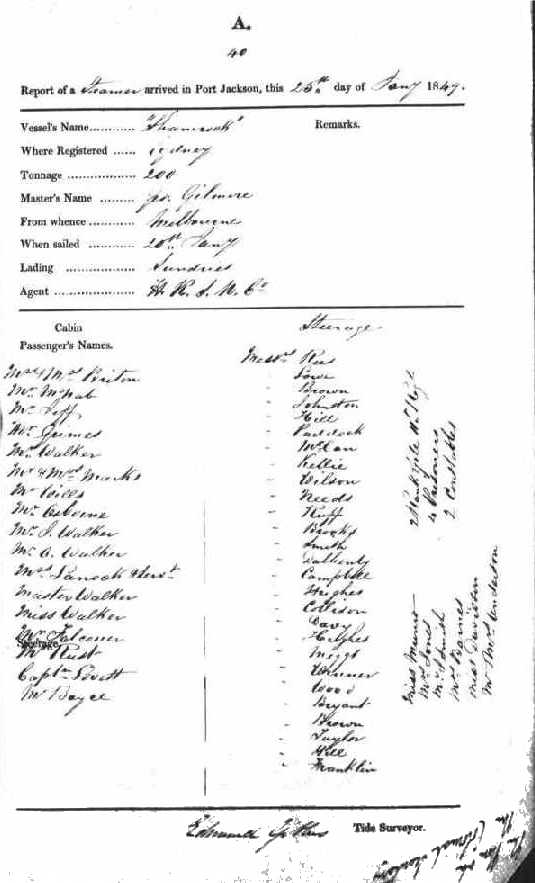 A.
40
Report of a Steamer arrived in Port Jackson, this 25th day of Jany 1849.
Vessel's Name........... "Shamrock" Remarks.
Where Registered ...... Sydney
Tonnage .................. 200
Master's Name ......... Gilmore
From whence............ Melbourne
When sailed ............ 20th Jany
Lading .................. Sundries
Agent ..................... H. R. S. N. Co
Cabin
Passenger's Names.
Mr & Mrs
Mr McNab
Mr
Mr Grimes
Mr Walker
Mr & Mrs Marks
Mr Wills
Mr Osborne
Mr J. Walker
Mr A. Walker
Mrs & Servt
Master Walker
Miss Walker
Mr Falconer
Mr Rust
Captn
Mr Boyce
Steerage
Messrs
Lowe
Brown
Johnston
Hill
Paddock
McCan
Kellie
Wilson
Needs
Ruff
Brooks
Smith
Campbell
Hughes
Collison
Davy
Hughes
Meigs
Wood
Bryant
Brown
Taylor
Hill
Franklin
4 Prisoners
2 Constables
Miss Munro
Mrs Jones
Mr Smith
Mrs Barnes
Miss Davidson
Mr Mrs Anderson
Edmund Tide Surveyor.